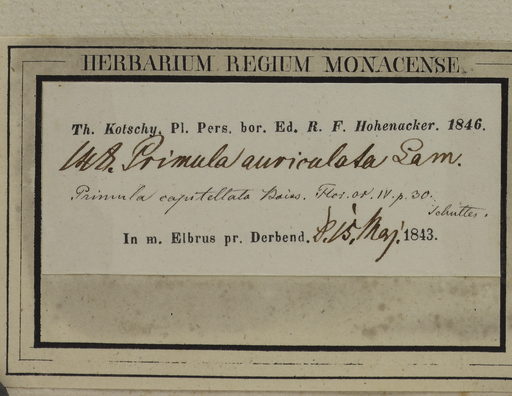 HERBARIUM REGIUM MONACENSE.
Th. Kotschy. Pl. Pers. bor. Ed. R. F. Hohenacker. 1846.
Primula auriculata Lam.
Primula capitellata Boiss. Flor. or. IV. p. 30.
In m. Elbrus pr. Derbend. d. 15. Maj. 1843.